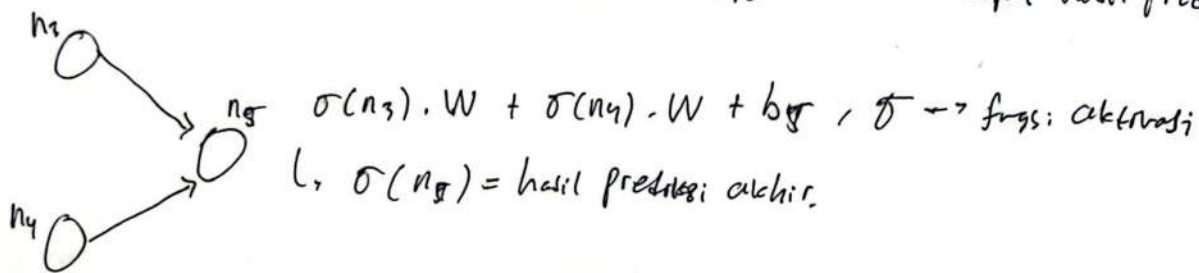 n3
n5 σ(n3) . W + σ(n4) . W + b5 , σ → fngsi aktivasi
↳ σ(n5) = hasil prediksi akhir.
n4